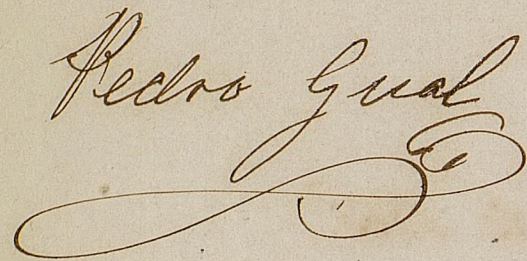 Pedro Gual